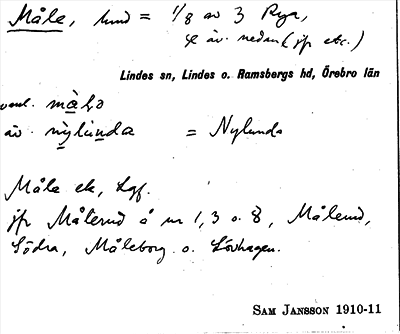 Måle, hmd = 1/8 av 3 Rya,
& äv. nedan (jfr etc.)
Lindes sn, Lindes o. Ramsbergs hd, Örebro län
vanl. må̀la
äv. nỳlùnda = Nylunda
Måle ek, Lgf.
jfr Målerud å nr 1, 3 o. 8, Målerud,
Södra, Måleborg o. Lövhagen.
SAM JANSSON 1910-11